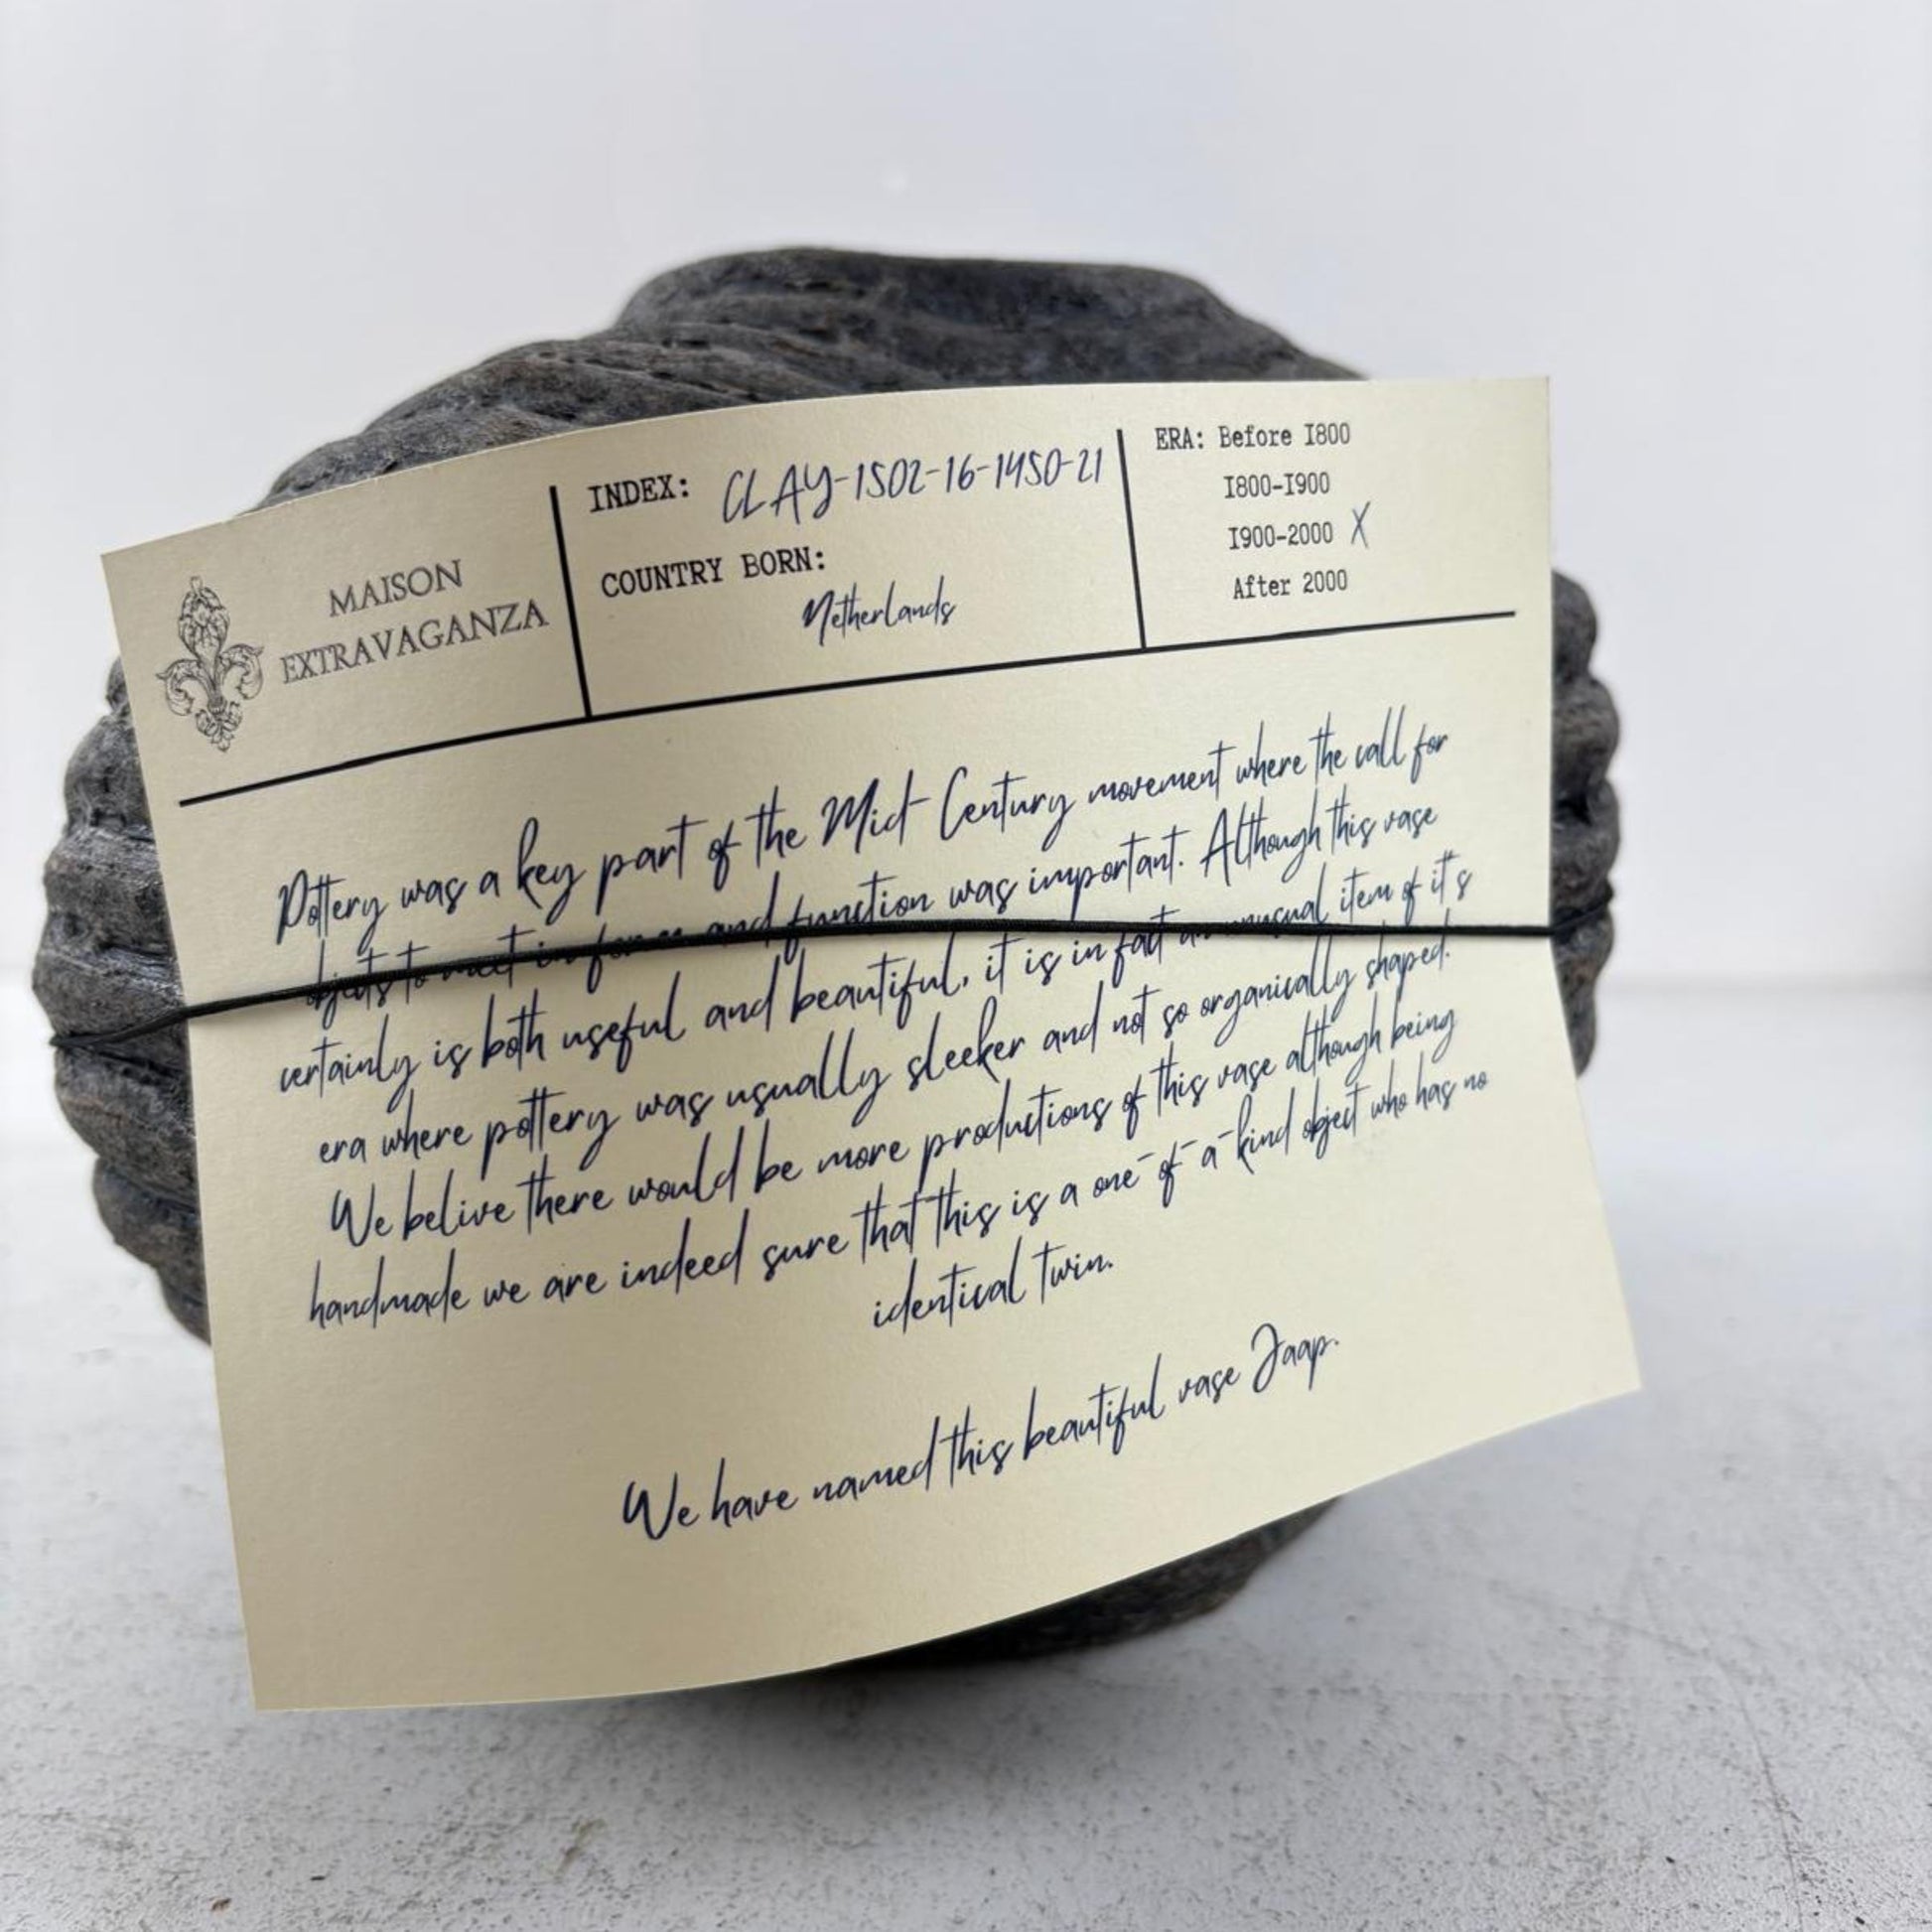 MAISON
EXTRAVAGANZA
INDEX: CLAY-1502-16-1450-21
COUNTRY BORN:
Netherlands
ERA: Before I800
I800-I900
I900-2000 X
After 2000
Pottery was a key part of the Mid-Century movement where the call for
objects to meet in form and function was important. Although this vase
certainly is both useful and beautiful, it is in fact an unusual item of it's
era where pottery was usually sleeker and not so organically shaped.
We belive there would be more productions of this vase although being
handmade we are indeed sure that this is a one-of-a-kind object who has no
identical twin.
We have named this beautiful vase Jaap.